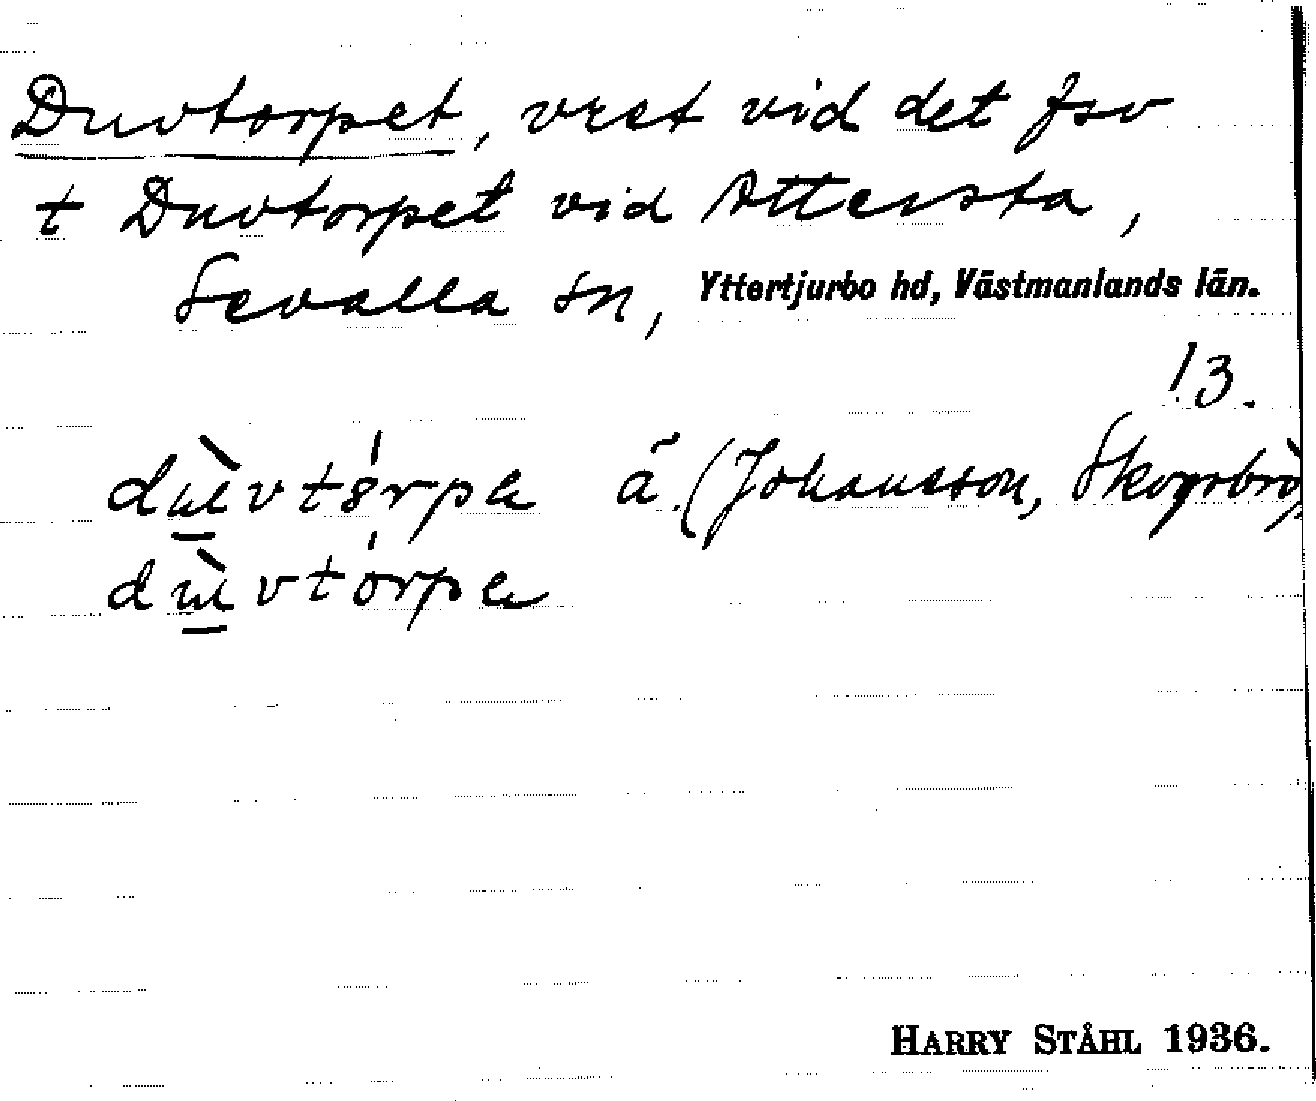 Duvtorpet, vret vid det fsv
t Duvtorpet vid Attersta,
Sevalla sn, Yttertjurbo hd, Västmanlands län.
13.
dɯ̀vtórpa ä (Johansson, Skogsbro)
dɯ̀vtórpa
HARRY STÅHL 1936.